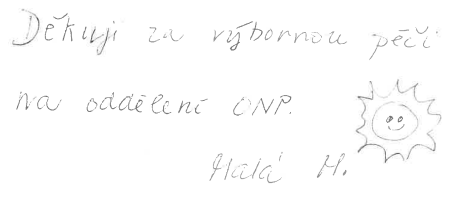 Děkuji za výbornou péči
na oddělení ONP.
Malá H.